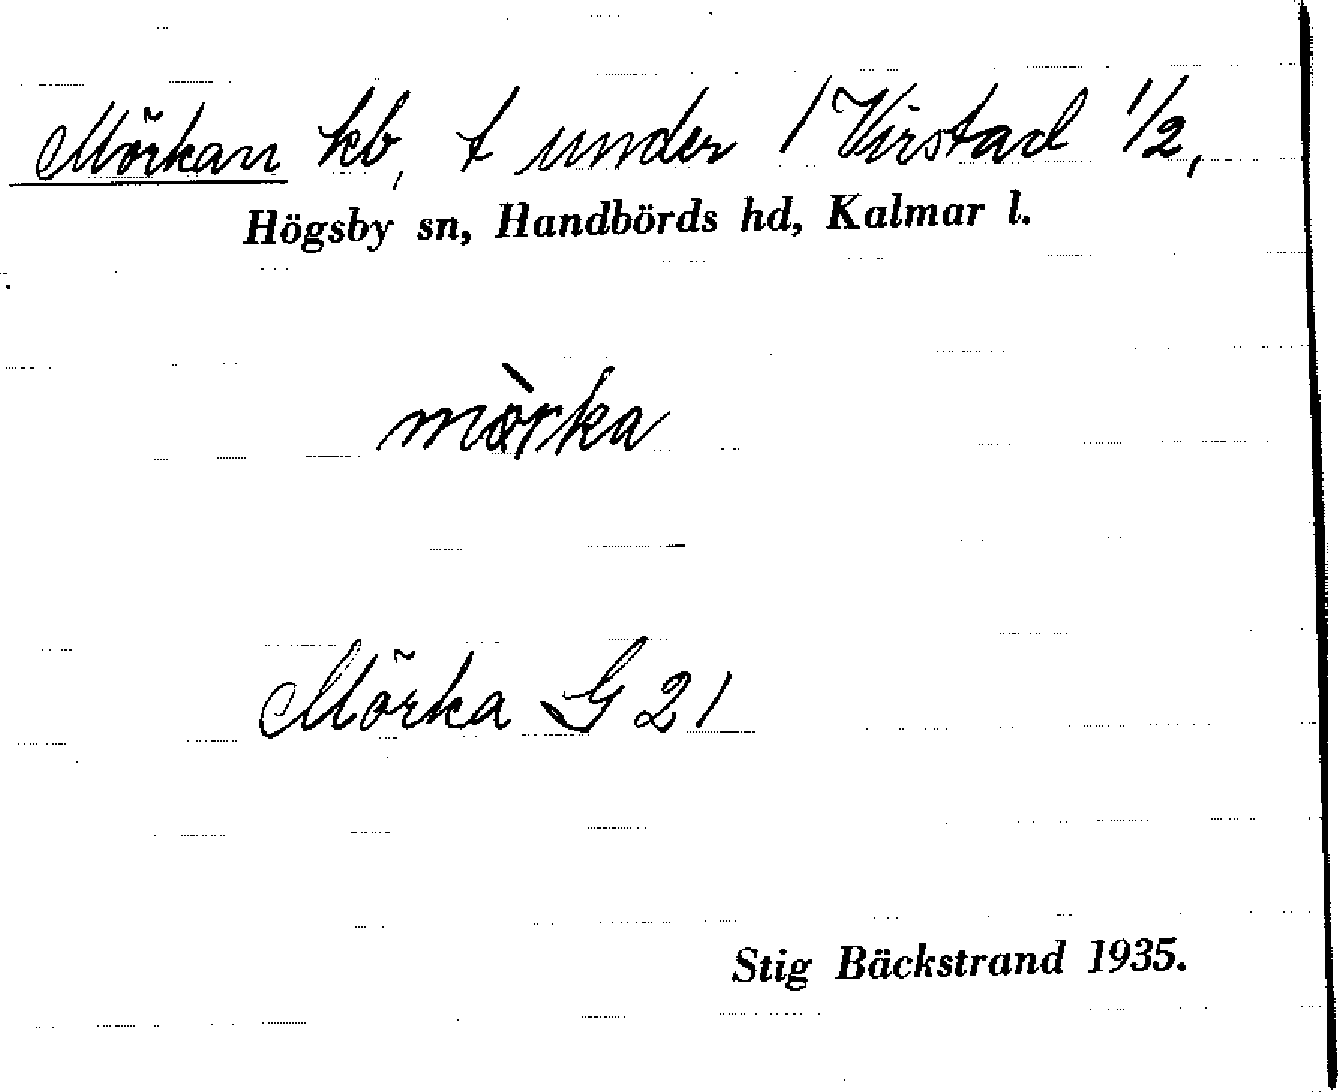 Mörkan kb, t under / Virstad 1/2,
Högsby sn, Handbörds hd, Kalmar l.
mòrka
Mörka G 21
Stig Bäckstrand 1935.